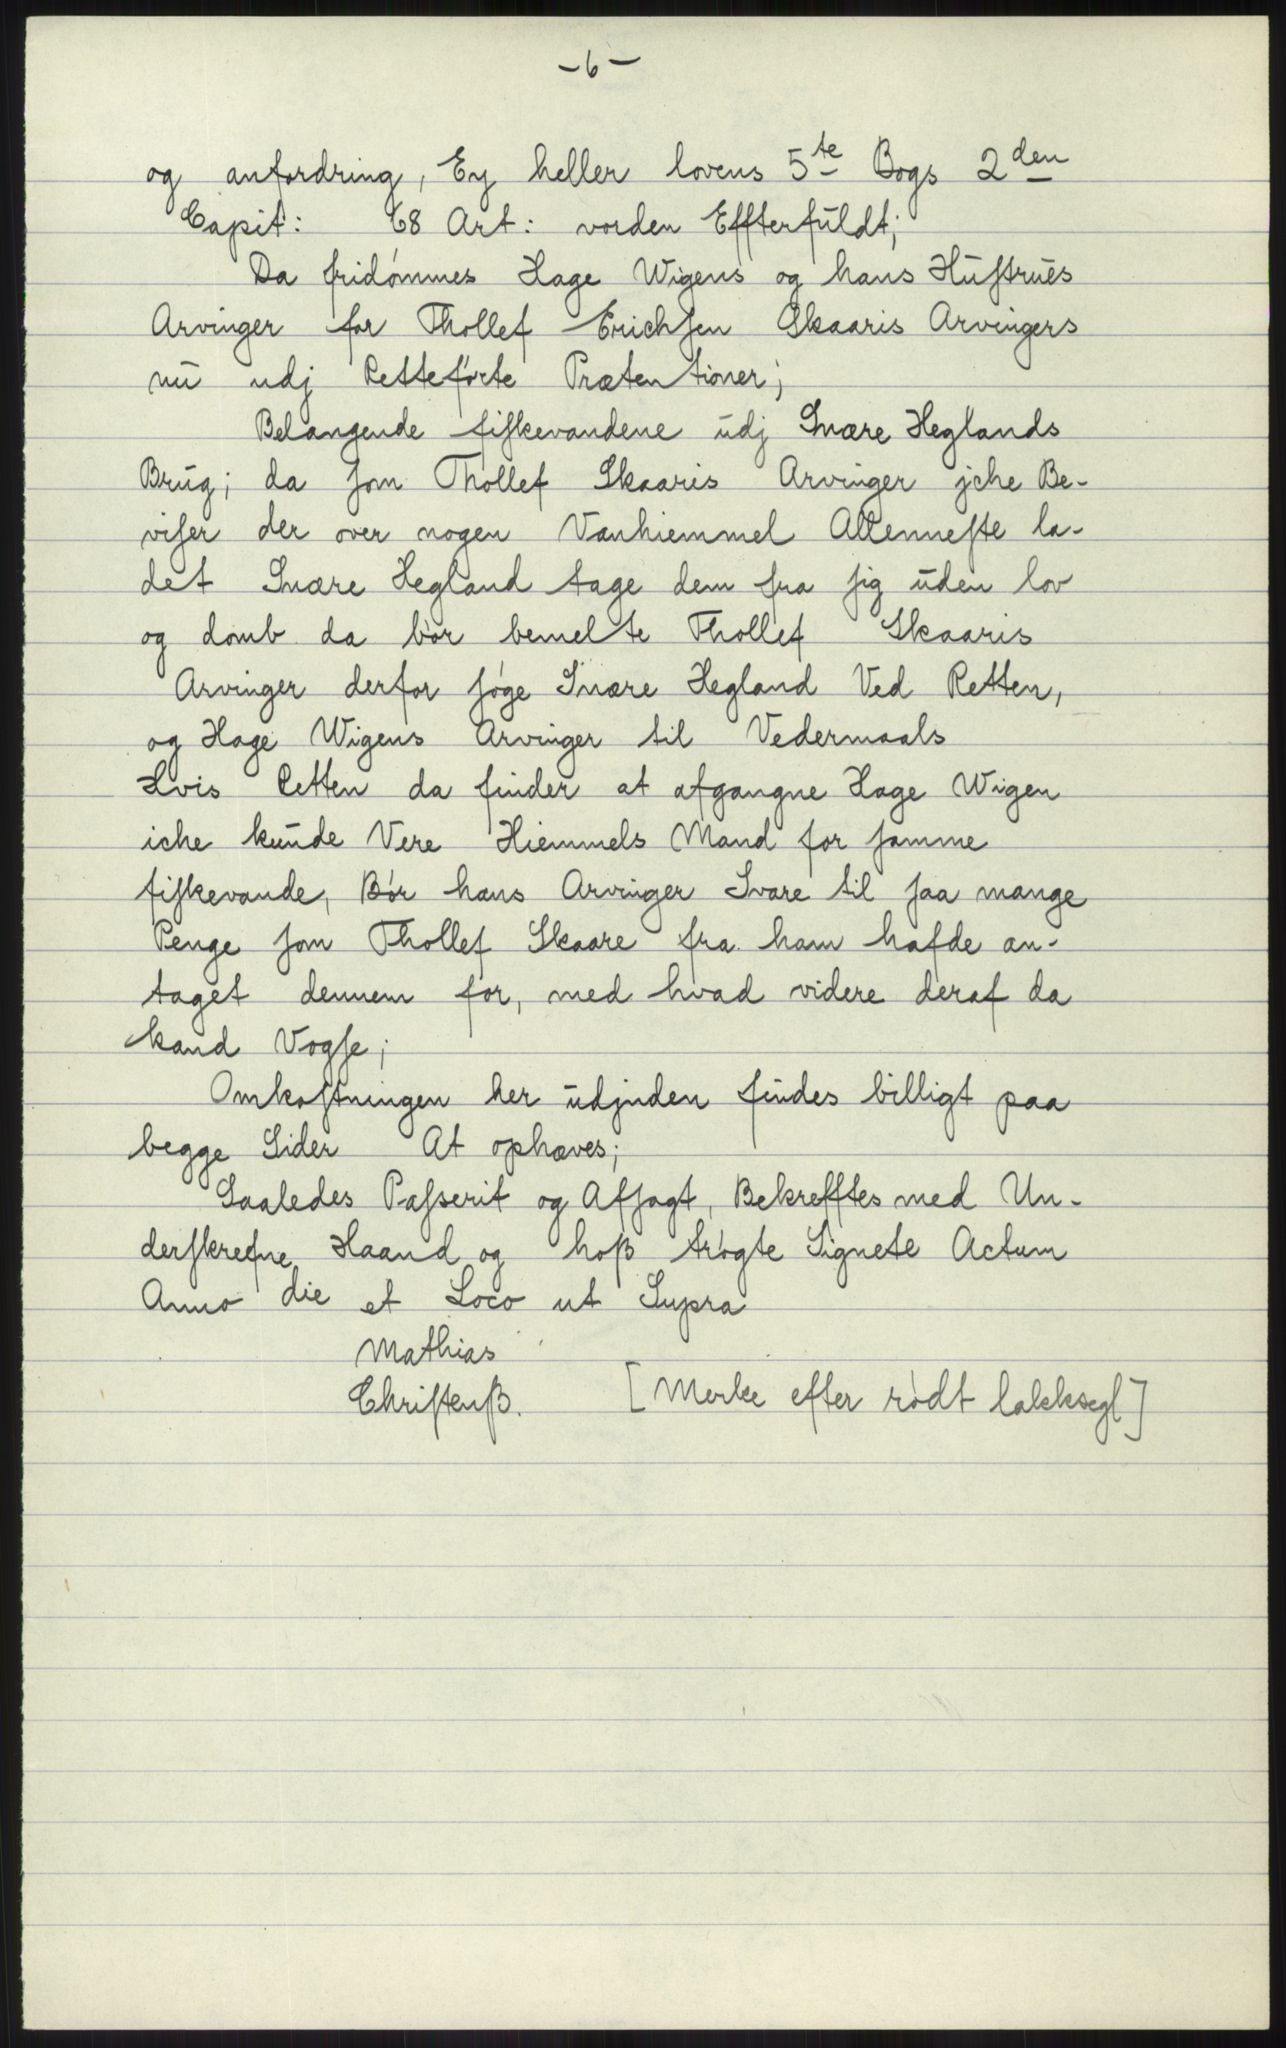 -6-
og anfordring, Ey heller lovens 5te Bogs 2den
Capit: 68 Art: vorden Effterfuldt;
Da fridømmes Hage Wigens og hans Hustrues
Arvinger for Thollef Erichsen Skaaris Arvingers
nu udj Retteførte Prætentioner;
Belangende fiskevandene udj Snære Heglands
Brug; da som Thollef Skaaris Arvinger jche Be-
viser der over nogen Vanhiemmel Allenneste la-
det Snære Hegland tage dem fra sig uden lov
og domb da bør bemelte Thollef Skaaris
Arvinger derfor søge Snære Hegland Ved Retten,
og Hage Wigens Arvinger til Vedermaals
Hvis Retten da finder at afgangne Hage Wigen
iche kunde Vere Hiemmels Mand for samme
fiskevande, Bør hans Arvinger Svare til saa mange
Penge som Thollef Skaare fra ham hafde an-
taget dennem for, med hvad videre deraf da
kand Vogse;
Omkostningen her udjnden findes billigt paa
begge Sider At ophæves;
Saaledes Passerit og Afsagt, Bekrefftes med Un-
derskrefne Haand og hoß trøgte Signete Actum
Anno die et Loco ut Supra
Mathias
Christenß. [Merke efter rødt lakksegl]